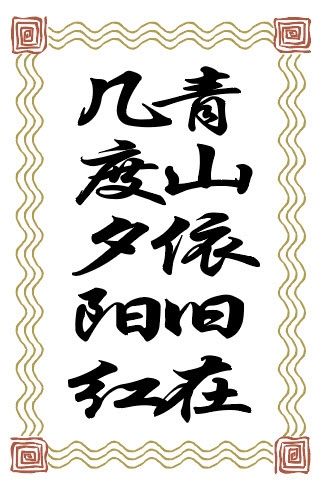 青山依旧在
几度夕阳红